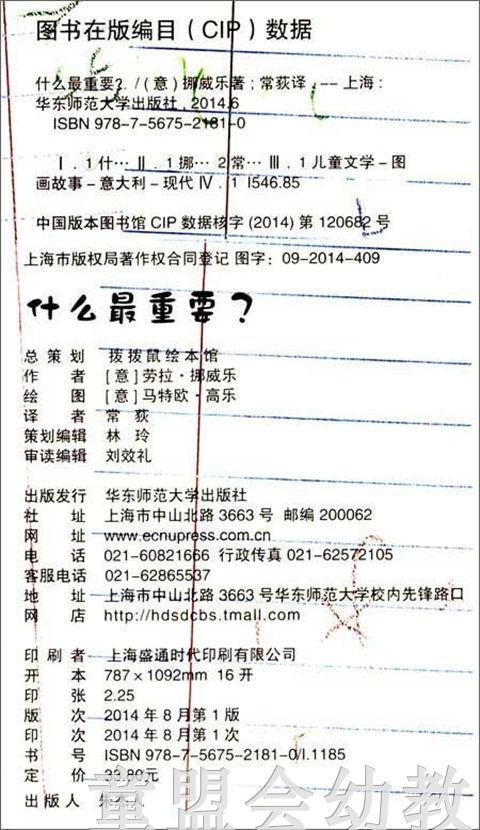 图书在版编目（CIP）数据
什么最重要？/（意）挪威乐著；常荻译．-- 上海：
华东师范大学出版社，2014.6
ISBN 978-7-5675-2181-0
Ⅰ．1什… Ⅱ．1挪… 2常… Ⅲ．1儿童文学－图
画故事－意大利－现代 Ⅳ．1 I546.85
中国版本图书馆 CIP 数据核字 (2014) 第 120682 号
上海市版权局著作权合同登记 图字：09-2014-409
什么最重要？
总策划 拨拨鼠绘本馆
作者 [意]劳拉·挪威乐
绘图 [意]马特欧·高乐
译者 常荻
策划编辑 林玲
审读编辑 刘效礼
出版发行 华东师范大学出版社
社址 上海市中山北路 3663 号 邮编 200062
网址 www.ecnupress.com.cn
电话 021-60821666 行政传真 021-62572105
客服电话 021-62865537
地址 上海市中山北路 3663 号华东师范大学校内先锋路口
网店 http://hdsdcbs.tmall.com
印刷者 上海盛通时代印刷有限公司
开本 787×1092mm 16 开
印张 2.25
版次 2014 年 8 月第 1 版
印次 2014 年 8 月第 1 次
书号 ISBN 978-7-5675-2181-0/I.1185
定价
出版人
童盟会幼教